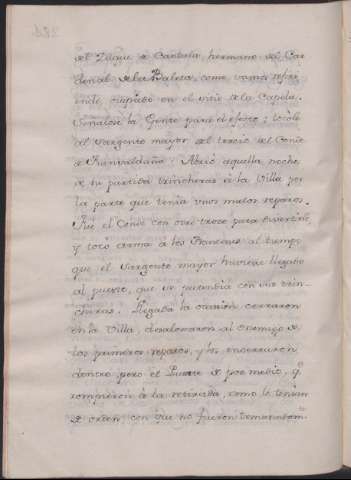 del Duque de Candala, hermano del Car
denal de la Baleta, como vamos refi
riendo, ocupado en el sitio de la Capela.
Señalose la Gente para el efecto; tocole
al Sargento mayor del tercio del Conde
de Fuensaldaña: Abrió aquella noche
de su partida trincheras à la Villa por
la parte que tenia unos malos reparos.
Fue el Conde con otro trozo para divertirle
y tocó arma à los Franceses al tiempo
que el Sargento mayor huviese llegado
al puesto, que se pretendia con sus trin
cheras. Llegada la ocasion cerraron
en la Villa, desalojaron al enemigo de
los primeros reparos, y los encerraron
dentro, pero el Puente de por medio, q.
rompieron à la retirada, como lo tenian
de orden; con que no fueron